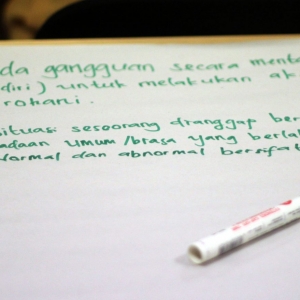 da gangguan secara menta
diri) untuk melakukan ak
rohani.
situasi seseorang dianggap ber
adaan umum/biasa yang berla
normal dan abnormal bersifat